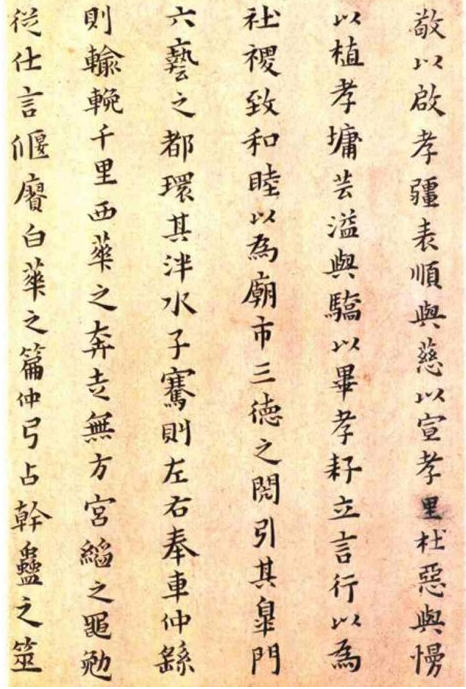 敬以啟孝疆表順與慈以宣孝里杜惡與慢
以植孝墉芸溢與驕以畢孝耔立言行以為
社稷致和睦以為廟市三德之閎引其皐門
六藝之都環其泮水子騫則左右奉車仲繇
則輸輓千里西華之奔走無方宮縚之黽勉
從仕言偃賡白華之篇仲弓占幹蠱之筮